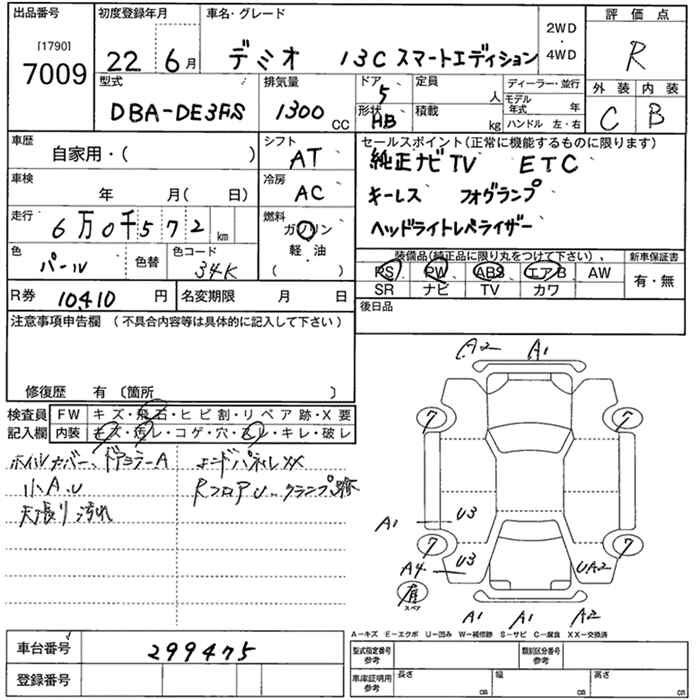 出品番号 初度登録年月 車名・グレード 評価点
[1790]
7009 22 6月 デミオ 13C スマートエディション 2WD・4WD R
型式 排気量 ドア 5 定員 人 ディーラー・並行 外装 内装
DBA-DE3FS 1300 CC 形状 HB 積載 kg モデル年式 年 C B
ハンドル 左・右
車歴 シフト セールスポイント(正常に機能するものに限ります)
自家用・( ) AT 純正ナビTV ETC
車検 冷房 キーレス フォグランプ
年 月( 日) AC
走行 燃料 ヘッドライトレベライザー
6万0千572km ガソリン
色 色替 色コード 軽・油
パール 34K ( )
装備品(純正品に限り丸をつけて下さい) 新車保証書
PS PW ABS エアB AW 有・無
SR ナビ TV カワ
R券 10410円 名変期限 月 日 後日品
注意事項申告欄(不具合内容等は具体的に記入して下さい)
修復歴 有〔箇所 〕
検査員 FW キズ・飛石・ヒビ割・リペア跡・X要
記入欄 内装 キズ・汚レ・コゲ・穴・スレ・キレ・破レ
ホイルカバー、ドアミラーA エンドパネルXX
小A、U RフロアU クランプ跡
天張り汚れ
A2 A1
7 7
A1 U3
7 7
A4 U3 UA2
有 スペア
A1 A1 A2
A−キズ E−エクボ U−凹み W−補修跡 S−サビ C−腐食 XX−交換済
車台番号 299475 型式指定番号 参考 類別区分番号 参考
登録番号 車庫証明用 参考 長さ cm 幅 cm 高さ cm